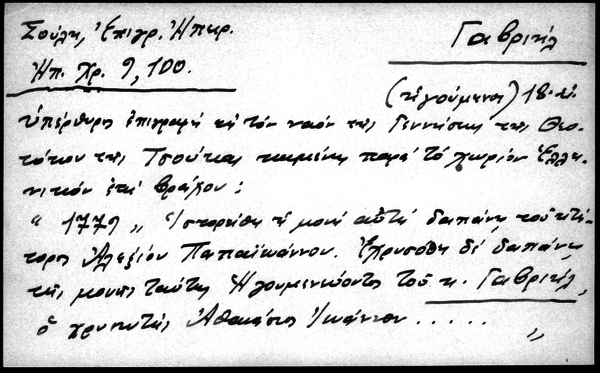 Σούλη, Ἐπιγρ. Ἠπειρ.
Ἠπ. Χρ. 9, 100.
Γαβριήλ
(ἡγούμενος) 18. αἰ.
Ὑπέρθυρος ἐπιγραφὴ εἰς τὸν ναὸν τῆς Γεννήσεως τῆς Θεο-
τόκου τῆς Τσούκας κειμένης παρὰ τὸ χωρίον Ἑλλη-
νικὸν ἐπὶ βράχου:
" 1779 " Ἱστορήθη ἡ μονὴ αὕτη δαπάνῃ τοῦ κτί-
τορος Ἀλεξίου Παπαϊωάννου. Ἐχρυσώθη δὲ δαπάνῃ
τῆς μονῆς ταύτης Ἡγουμενεύοντος τοῦ κ. Γαβριήλ,
ὁ χρυσωτὴς Ἀθανάσιος Ἰωάννου . . . . . "